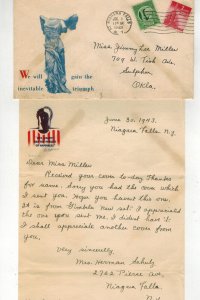 NIAGARA FALLS
JUL 1
1943
N.Y.
We will gain the
inevitable triumph
Miss Jimmy Lee Miller
709 W. Tish Ave.
Sulphur
Okla.
June 30, 1943.
Niagara Falls, N.Y.
Dear Miss Miller
Received your cover to-day. Thanks
for same. Sorry you had the one which
I sent you. Hope you havent this one.
It is from "Fontella" new set. I appreciated
the one you sent me. I didn't have it.
I shall appreciate another cover from
you.
Very sincerely,
Mrs. Herman Schulz
2722 Pierce Ave,
Niagara Falls,
N.Y.